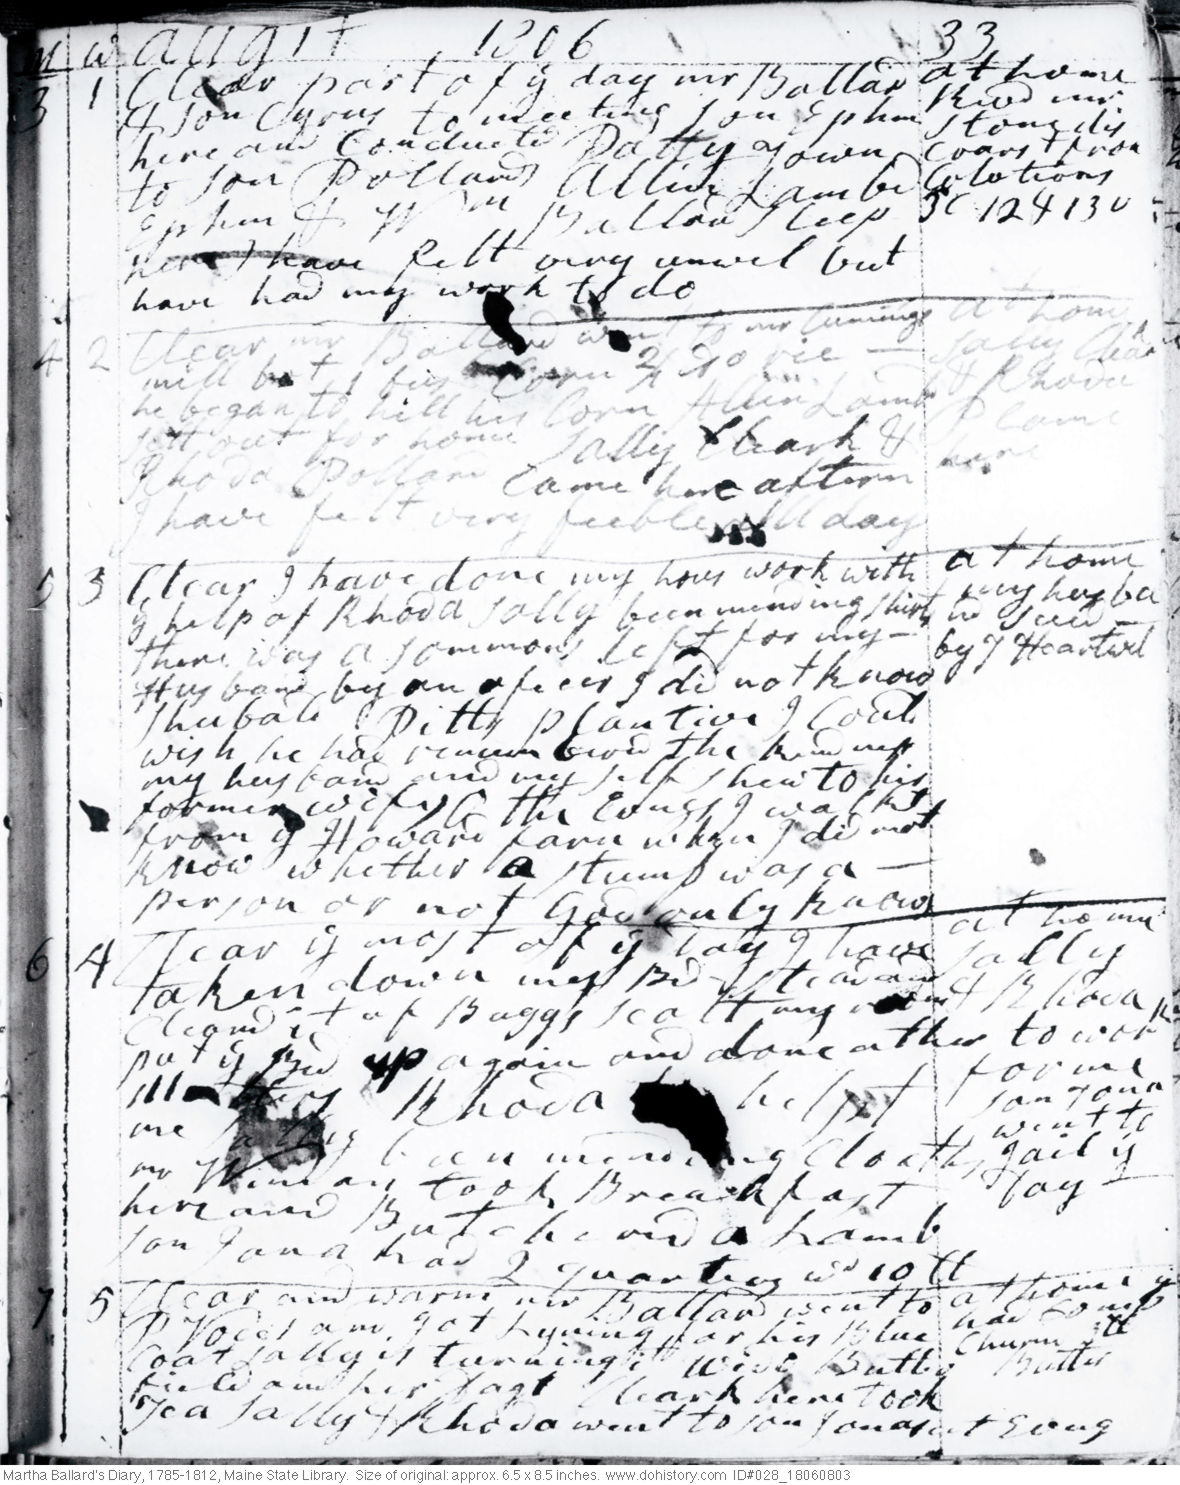 M W august 1806 33
3 1 Clear part of ÿ day mr Ballard at home
& son Cyrus to meeting son Ephm Rivd mr
here and Conducted Patty Town Stone dis
to son Pollards Allin Lambd Coars t from
Ephm & Wm Ballard sleep Colotions
here I have felt very unwel but 3C 12 & 13 v
have had my work to do
4 2 Clear mr Ballard went to mr Cumings at home
mill bot 1 bus Corn 2/ do rie — Sally Clark
he began to hill his Corn Allin Lambd & Rhoda
sett out for home Sally Cleark & P Came
Rhoda Pollard Came here aftern here
I have felt very feeble all day
5 3 Clear I have done my hous work with at home
ÿ help of Rhoda Sally been mending shirts my husba
there was a sommons left for my — nd sued —
Husband by an oficer I did not know by J Heartwel
Shubal Pitts plantive I Could
wish he had rememberd the kindness
my husband and my self shew to his
former wife &
from ÿ Howard farm when I did not
know whether a stump was a —
person or not God only knows
6 4 Clear ÿ most of ÿ day I have at home
taken down my Bedsteads and Sally
Cleand it of Buggs scalt my room & Rhoda
put ÿ Bed up again and done other to work
matters Rhoda helpt for me
me Sally been mending Cloaths son Jona
mr Wiman took Breakfast went to
here and Butcherd a Lamb Jail ÿ
son Jona had 2 quarters wd 10 lb Day —
7 5 Clear and warm mr Ballard went to at home ÿ
P Voces and got Lyning for his Blue had Comp
Coat Sally is turning it Wido Buttler Churnd lb
field and her Cleark here took Butter
Tea Sally & Rhoda went to son Jonas at Evng
Martha Ballard's Diary, 1785-1812, Maine State Library. Size of original: approx. 6.5 x 8.5 inches. www.dohistory.com ID#028_18060803